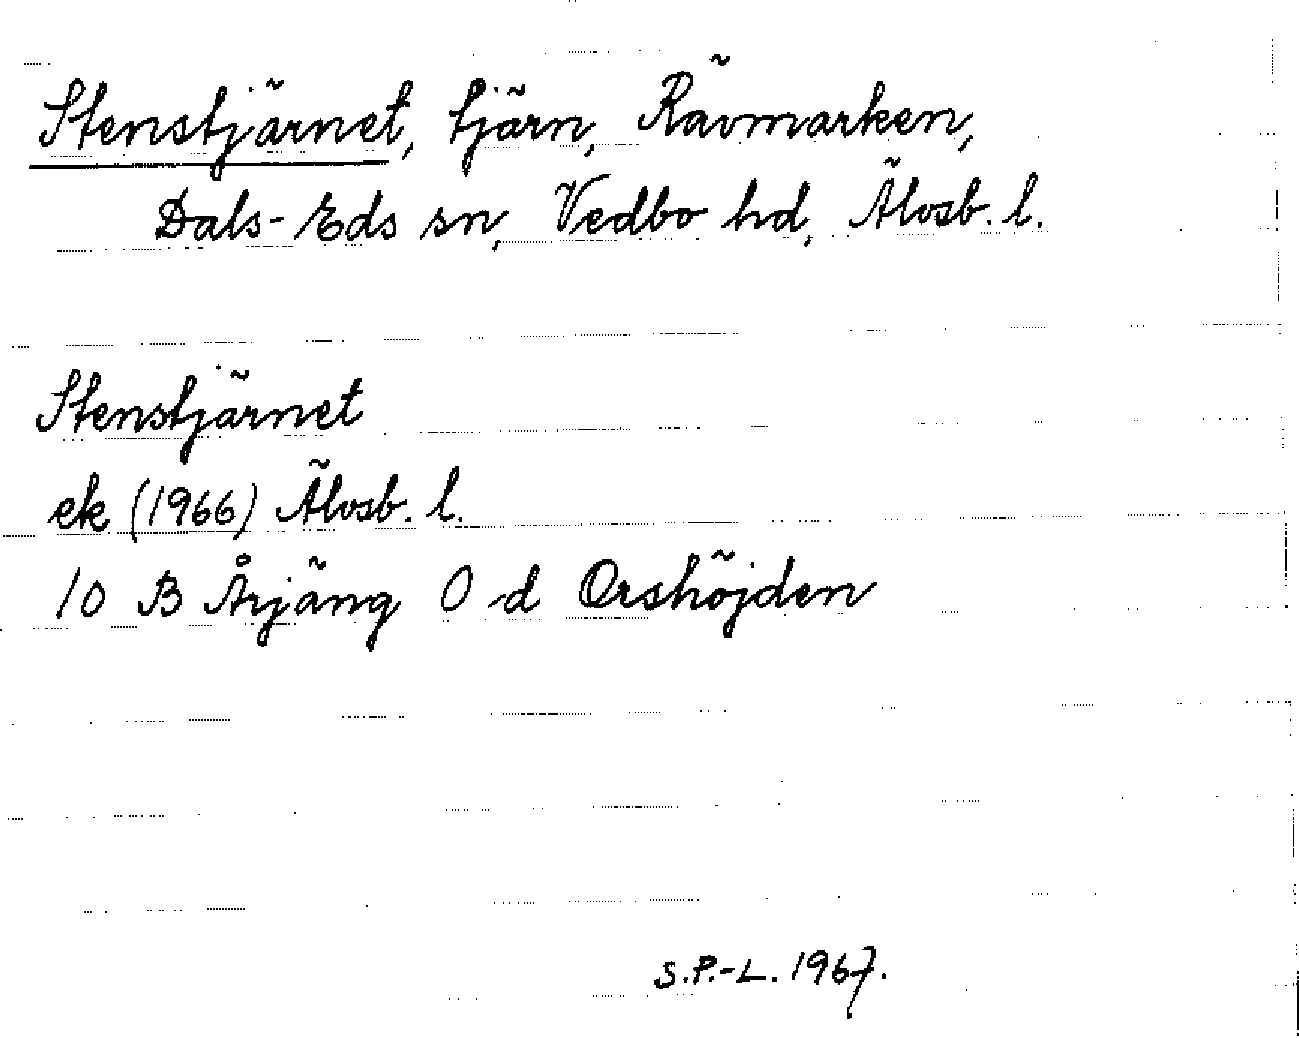 Stenstjärnet, tjärn, Rävmarken,
Dals-Eds sn, Vedbo hd, Älvsb. l.
Stenstjärnet
ek (1966) Älvsb. l.
10 B Årjäng 0 d Orshöjden
S.P.-L. 1967.